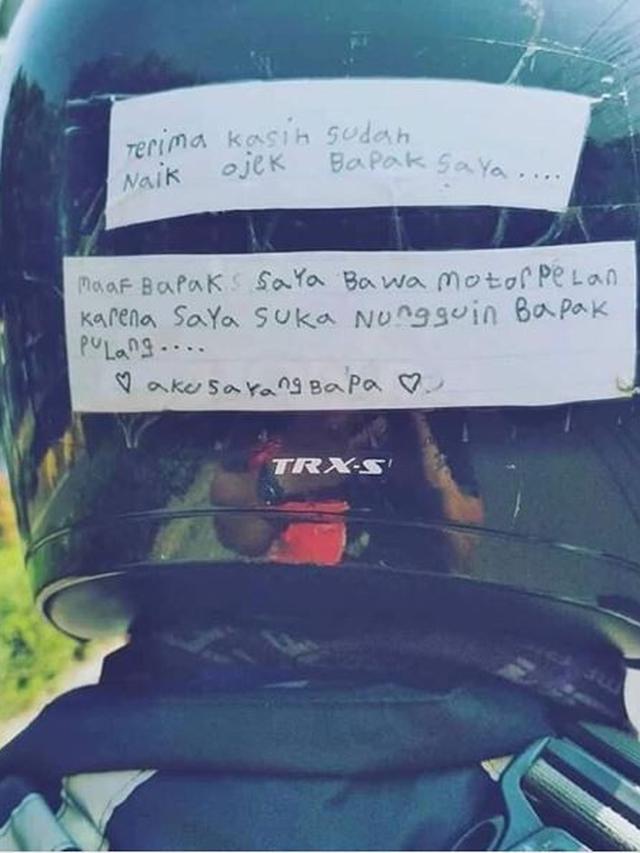 Terima kasih sudah
Naik ojek Bapak saya....
maaf Bapak saya Bawa motor Pelan
karena saya suka Nungguin Bapak
Pulang....
♡ aku sayang Bapa ♡
TRX-S